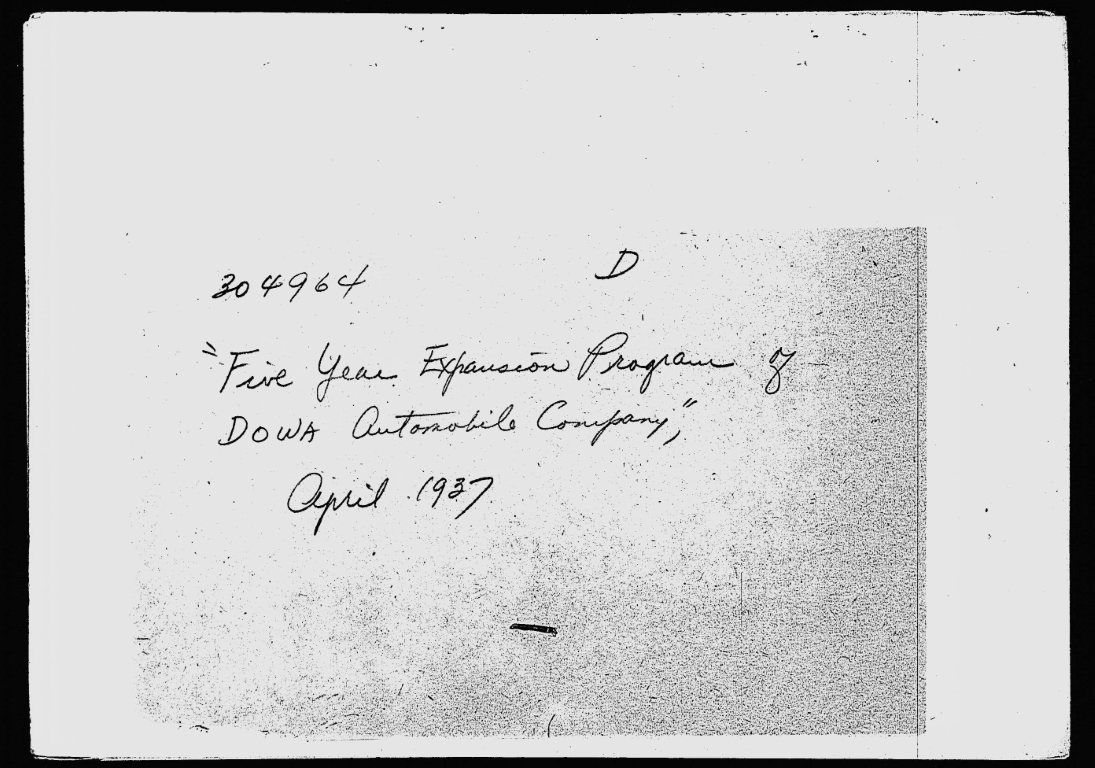 304964 D
"Five Year Expansion Program of
DOWA Automobile Company,"
April 1937